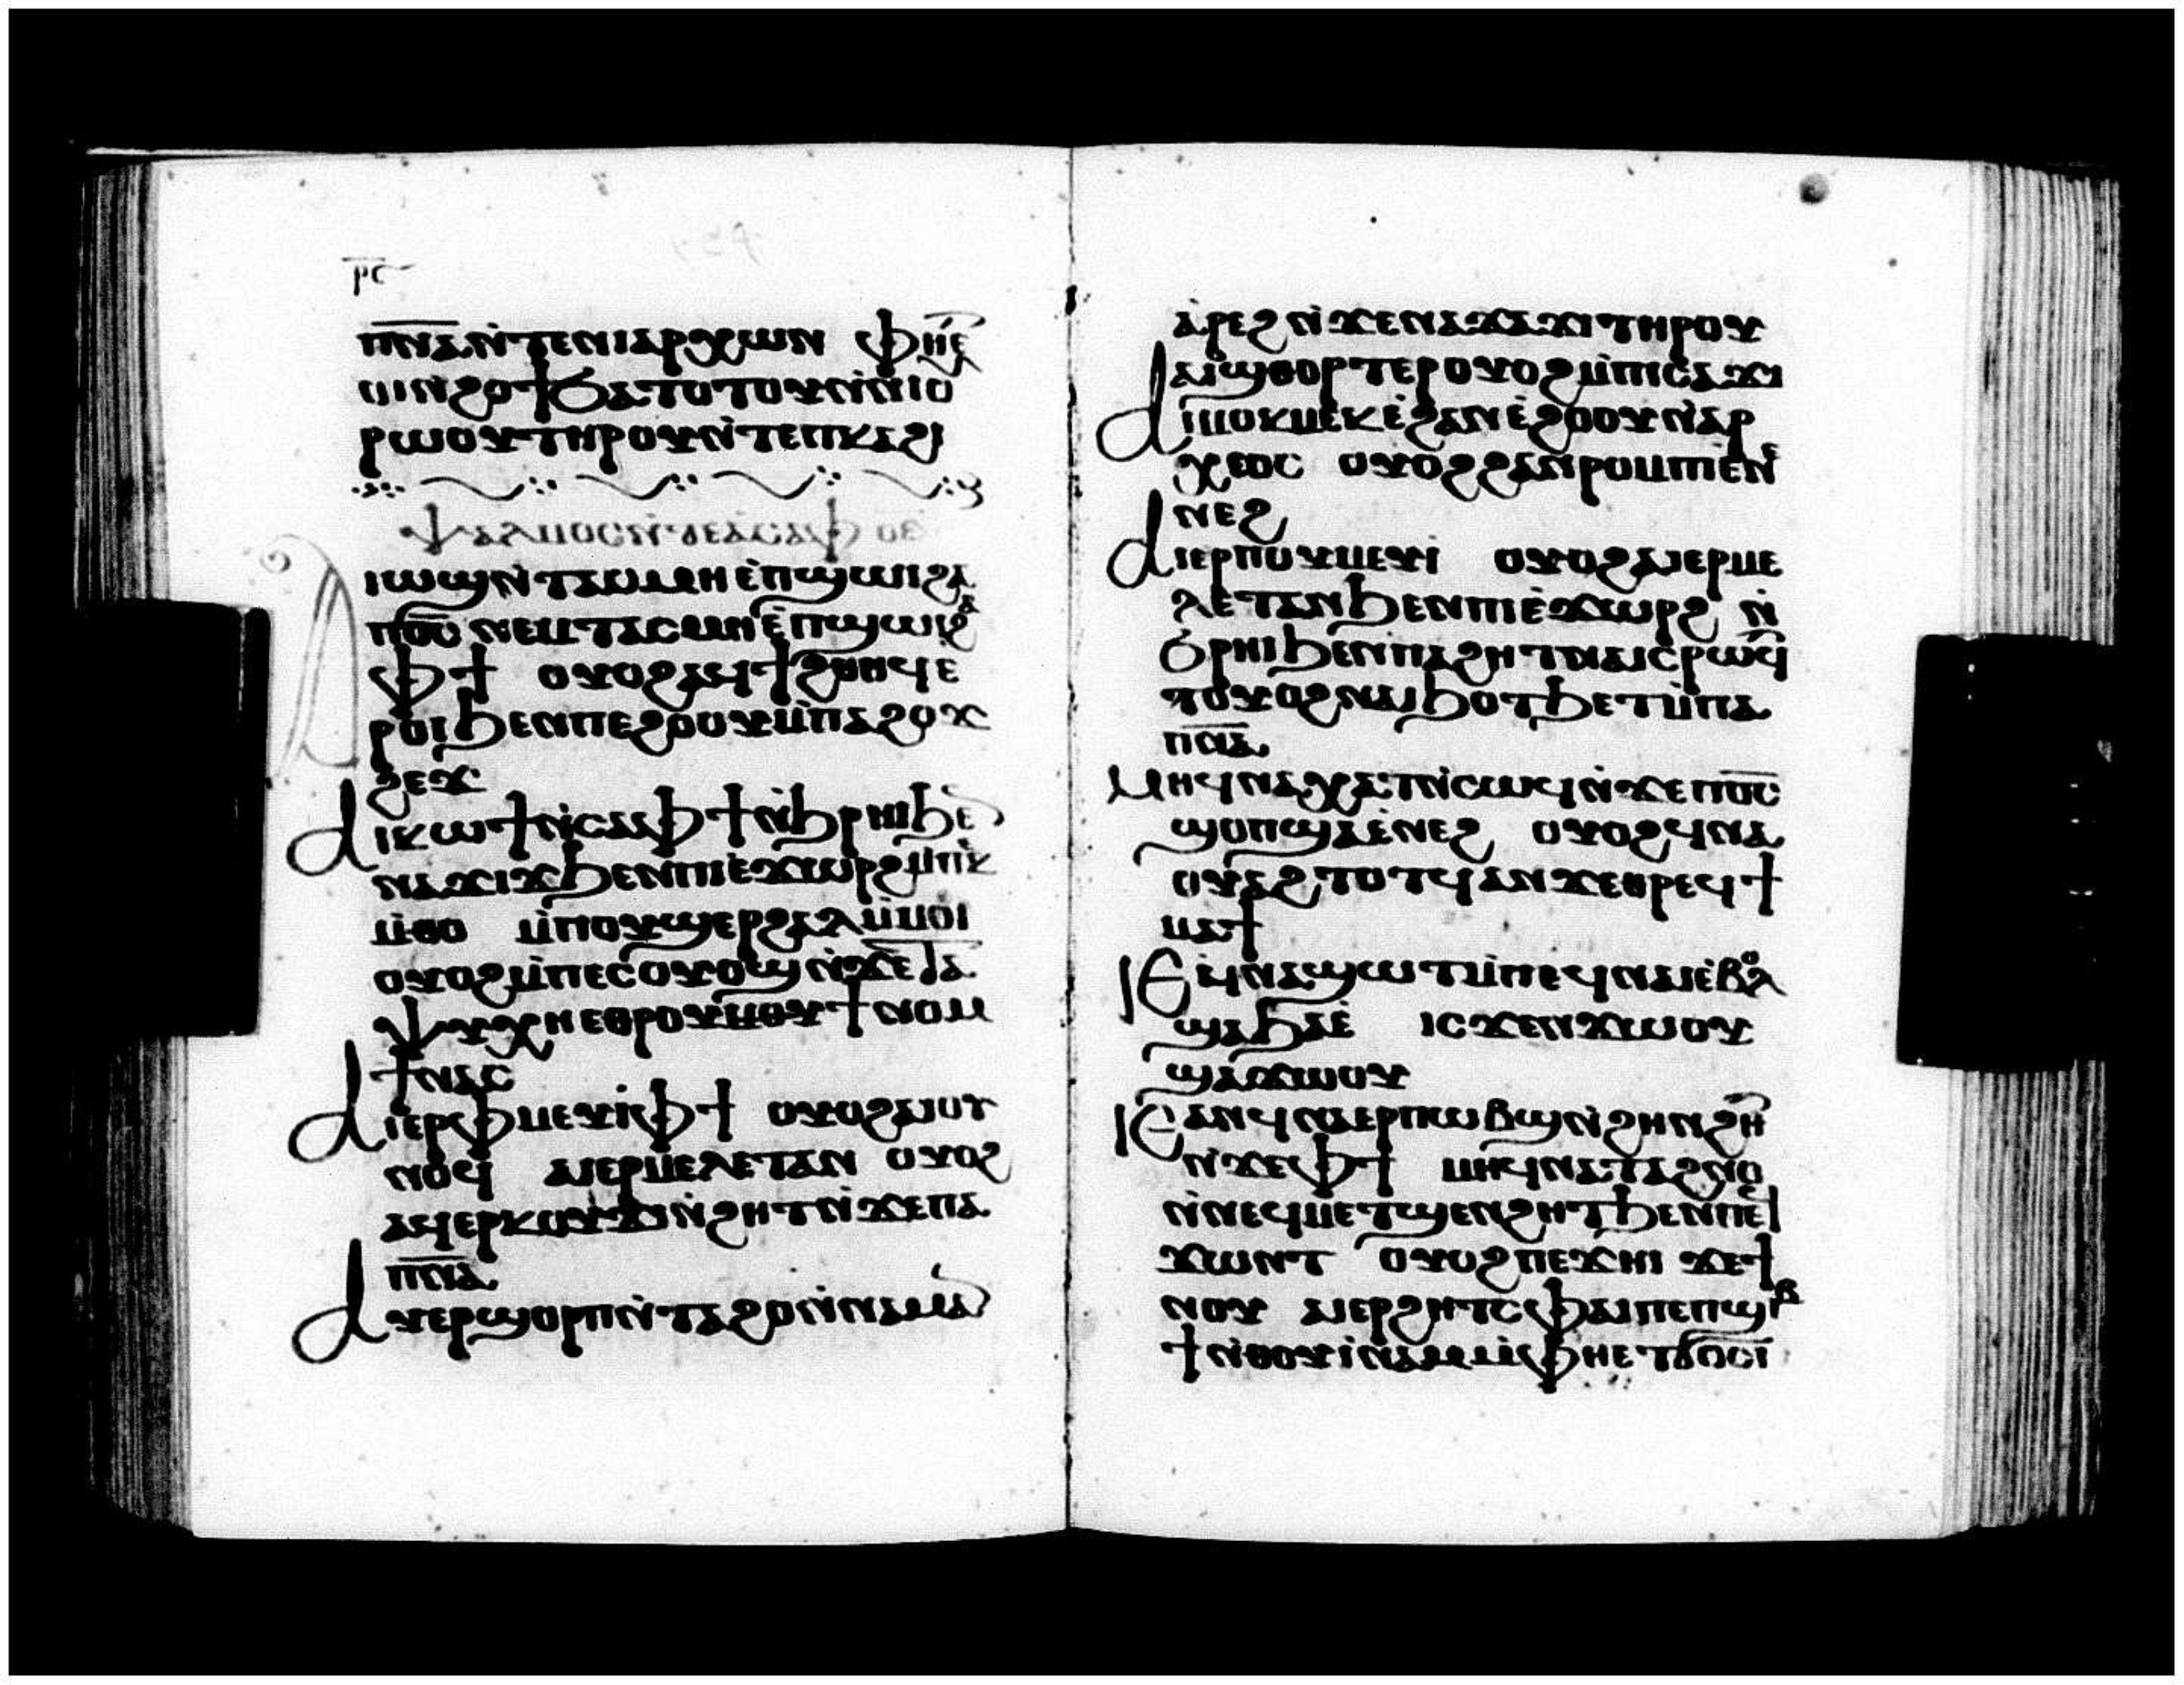 ⲣⲥ
ⲡⲛ̅ⲁ̅ⲛ̀ⲧⲉⲛⲓⲁⲣⲭⲱⲛ ⲫⲏⲉ̅
ⲙⲓⲛϩⲟϯϧⲁⲧⲟⲧⲟⲩⲛ̀ⲛⲓⲟ
ⲣⲱⲟⲩⲧⲏⲣⲟⲩⲛ̀ⲧⲉⲡⲕⲁϩⲓ
ⲯⲁⲗⲙⲟⲥ ⲟⲉ
ⲓⲱϣⲛ̀ⲧⲁⲥⲙⲏⲉ̀ⲡϣⲱⲓϩⲁ
ⲡⲟ̅ⲥ̅ ⲛⲉⲙⲧⲁⲥⲙⲏⲉ̀ⲡϣⲱⲓϩⲁ
ⲫϯ ⲟⲩⲟϩⲁϥϯϩⲑⲏϥⲉ
ⲣⲟⲓϧⲉⲛⲡⲉϩⲟⲟⲩⲙ̀ⲡⲁϩⲟϫ
ϩⲉϫ
ⲁⲓⲕⲱϯⲛ̀ⲥⲁⲫϯⲛ̀ϧⲣⲏⲓϧⲉ̅
ⲛⲁϫⲓϫϧⲉⲛⲡⲓⲉ̀ϫⲱⲣϩⲙ̀ⲡⲉⲕ
ⲙ̀ⲑⲟ ⲙ̀ⲡⲟⲩϣⲉⲣϩⲁⲗⲙ̀ⲙⲟⲓ
ⲟⲩⲟϩⲙ̀ⲡⲉⲥⲟⲩⲱϣⲛ̀ϫⲉⲧⲁ
ⲯⲩⲭⲏⲉⲑⲣⲟⲩϯⲛⲟⲙ
ϯⲛⲁⲥ
ⲁⲓⲉⲣⲫⲙⲉⲩⲓ̀ⲙ̀ⲫϯ ⲟⲩⲟϩⲁⲓⲟⲩ
ⲛⲟϥ ⲁⲓⲉⲣⲙⲉⲗⲉⲧⲁⲛ ⲟⲩⲟϩ
ⲁϥⲉⲣⲕⲟⲩϫⲓⲛ̀ϩⲏⲧⲛ̀ϫⲉⲡⲁ
ⲡⲛ̅ⲁ̅
ⲁⲩⲉⲣϣⲟⲣⲡⲛ̀ⲧⲁϩⲟⲛ̀ⲛⲁⲙⲁ̅
ⲁ̀ⲣⲉϩⲛ̀ϫⲉⲛⲁϫⲁϫⲓⲧⲏⲣⲟⲩ
ⲁⲓϣⲑⲟⲣⲧⲉⲣⲟⲩⲟϩⲙ̀ⲡⲓⲥⲁϫⲓ
ⲁⲓⲙⲟⲕⲙⲉⲕⲉ̀ϩⲁⲛⲉ̀ϩⲟⲟⲩⲛ̀ⲁⲣ
ⲭⲉⲟⲥ ⲟⲩⲟϩϩⲁⲛⲣⲟⲙⲡⲓⲉⲛ̀
ⲛⲉϩ
ⲁⲓⲉⲣⲡⲟⲩⲙⲉⲩⲓ ⲟⲩⲟϩⲁⲓⲉⲣⲙⲉ
ⲗⲉⲧⲁⲛϧⲉⲛⲡⲓⲉ̀ϫⲱⲣϩ ⲛ̀
ϧⲣⲏⲓϧⲉⲛⲡⲁϩⲏⲧⲛⲁⲓⲥⲣⲱϥⲓ
ⲧⲟⲩⲟϩⲛⲁⲓϧⲟⲧϧⲉⲧⲙ̀ⲡⲁ
ⲡⲛ̅ⲁ̅
ⲙⲏϥⲛⲁⲭⲁⲧⲛ̀ⲥⲱϥⲛ̀ϫⲉⲡⲟ̅ⲥ̅
ϣⲟⲡϣⲁⲉ̀ⲛⲉϩ ⲟⲩⲟϩϥⲛⲁ
ⲟⲩⲁϩⲧⲟⲧϥⲁⲛϫⲉⲑⲣⲉϥϯ
ⲙⲁϯ
ⲓⲉϥⲛⲁϣⲱⲧⲙ̀ⲡⲉϥⲛⲁⲓⲉ̀ⲃⲟⲗ
ϣⲁϧⲁⲉ̀ ⲓⲥϫⲉⲛϫⲱⲟⲩ
ϣⲁϫⲱⲟⲩ
ⲓⲉⲁⲛϥⲛⲁⲉⲣⲡⲱⲃϣⲛ̀ϩⲏⲛϩⲏ̅
ⲛ̀ϫⲉⲫϯ ⲙⲏϥⲛⲁⲧⲁϩⲛⲟ
ⲛ̀ⲛⲉϥⲙⲉⲧϣⲉⲛϩⲏⲧϧⲉⲛⲡⲉϥ
ϫⲱⲛⲧ ⲟⲩⲟϩⲡⲉϫⲏⲓ ϫⲉϯ
ⲛⲟⲩ ⲁⲓⲉⲣϩⲏⲧⲥⲫⲁⲓⲡⲉⲡϣⲓⲃ
ϯⲛ̀ⲑⲟⲩⲓ̀ⲛⲁⲙⲙ̀ⲫⲏⲉⲧϭⲟⲥⲓ